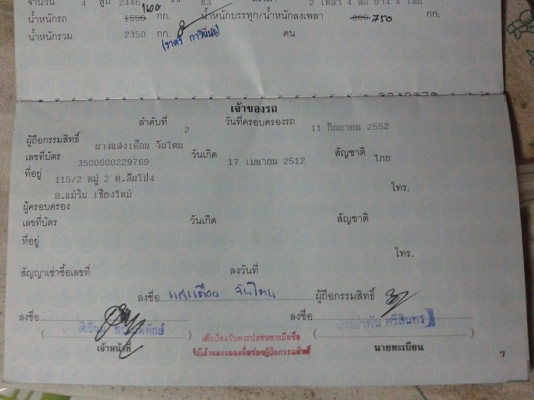 จำนวน 4 สูบ 2446 83 2 เพลา 4 ล้อ ยาง 4 เส้น
น้ำหนักรถ 1550 1600 กก. น้ำหนักบรรทุก/น้ำหนักลงเพลา 800 750 กก.
น้ำหนักรวม 2350 กก. คน
เจ้าของรถ
ลำดับที่ 2 วันที่ครอบครองรถ 11 กันยายน 2552
ผู้ถือกรรมสิทธิ์ นางแสงเดือน จันโตน
เลขที่บัตร 3500600229769 วันเกิด 17 เมษายน 2512 สัญชาติ ไทย
ที่อยู่ 115/2 หมู่ 2 ต.สันโป่ง
อ.แม่ริม เชียงใหม่ โทร.
ผู้ครอบครอง
เลขที่บัตร วันเกิด สัญชาติ
ที่อยู่
โทร.
สัญญาเช่าซื้อเลขที่ ลงวันที่
ลงชื่อ แสงเดือน จันโตน ผู้ถือกรรมสิทธิ์
ลงชื่อ ลงชื่อ
( ) ( ศรีสินทร )
เจ้าหน้าที่ นายทะเบียน
เพื่อป้องกันการปลอมลายมือชื่อ
ให้เจ้าของรถลงชื่อช่องผู้ถือกรรมสิทธิ์
7